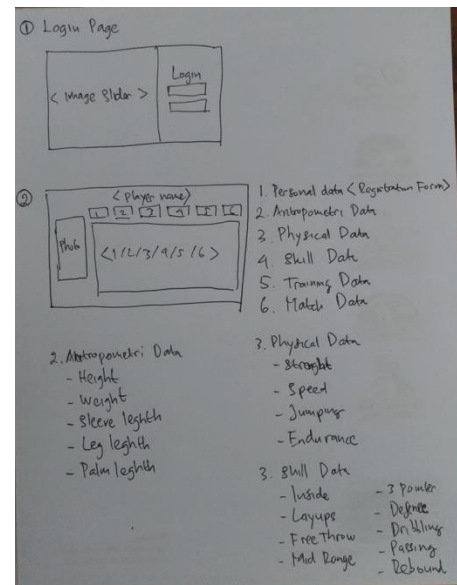 ① Login Page
< Image Slider >
Login
②
< Player name >
1 2 3 4 5 6
Photo
< 1/2/3/4/5/6 >
1. Personal data < Registration Form >
2. Antropometri Data
3. Physical Data
4. Skill Data
5. Training Data
6. Match Data
2. Antropometri Data
- Height
- Weight
- Sleeve leghth
- Leg leghth
- Palm leghth
3. Physical Data
- Speed
- Jumping
- Endurance
3. Skill Data
- Inside
- Layups
- Free Throw
- Mid Range
- 3 Pointer
- Defense
- Dribbling
- Passing
- Rebound